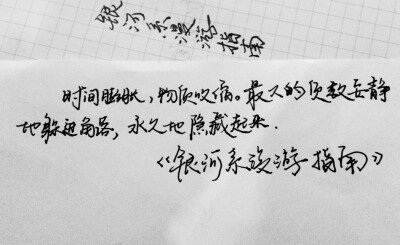 银河系漫游指南
时间，物质收缩。最大的质数安静
地躲进角落，永久地隐藏起来.
《银河系漫游指南》